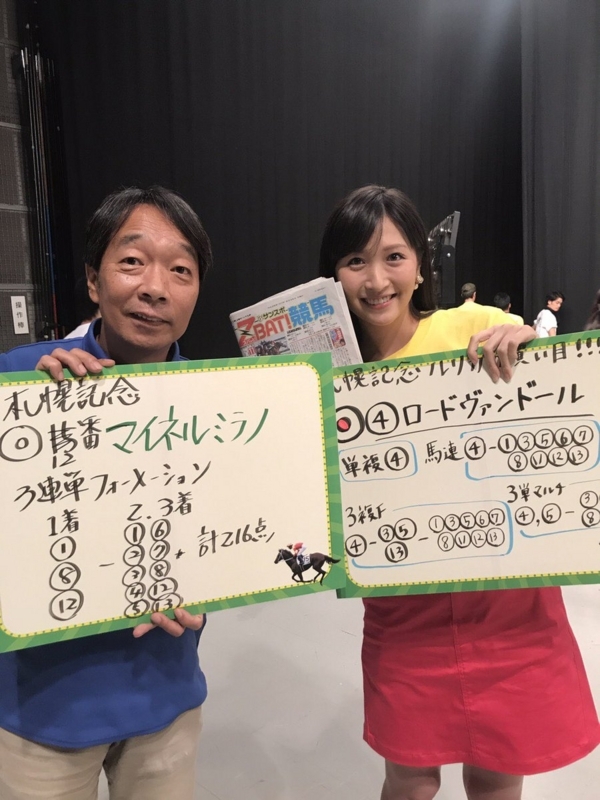 操作棒
サンスポ
ZBAT!競馬
札幌記念
◎ 12番 マイネルミラノ
3連単フォーメーション
1着 2、3着
① ①⑥
⑧ - ②⑦ 計216点
③⑧
⑫ ④⑫
⑤⑬
札幌記念
買い目!!!
④ロードヴァンドール
単複④ 馬連④-①③⑤⑥⑦
⑧⑪⑫⑬
3複F
④-③⑤-①③⑤⑥⑦
⑬ ⑧⑪⑫⑬
3単マルチ
④,⑤-③
⑧